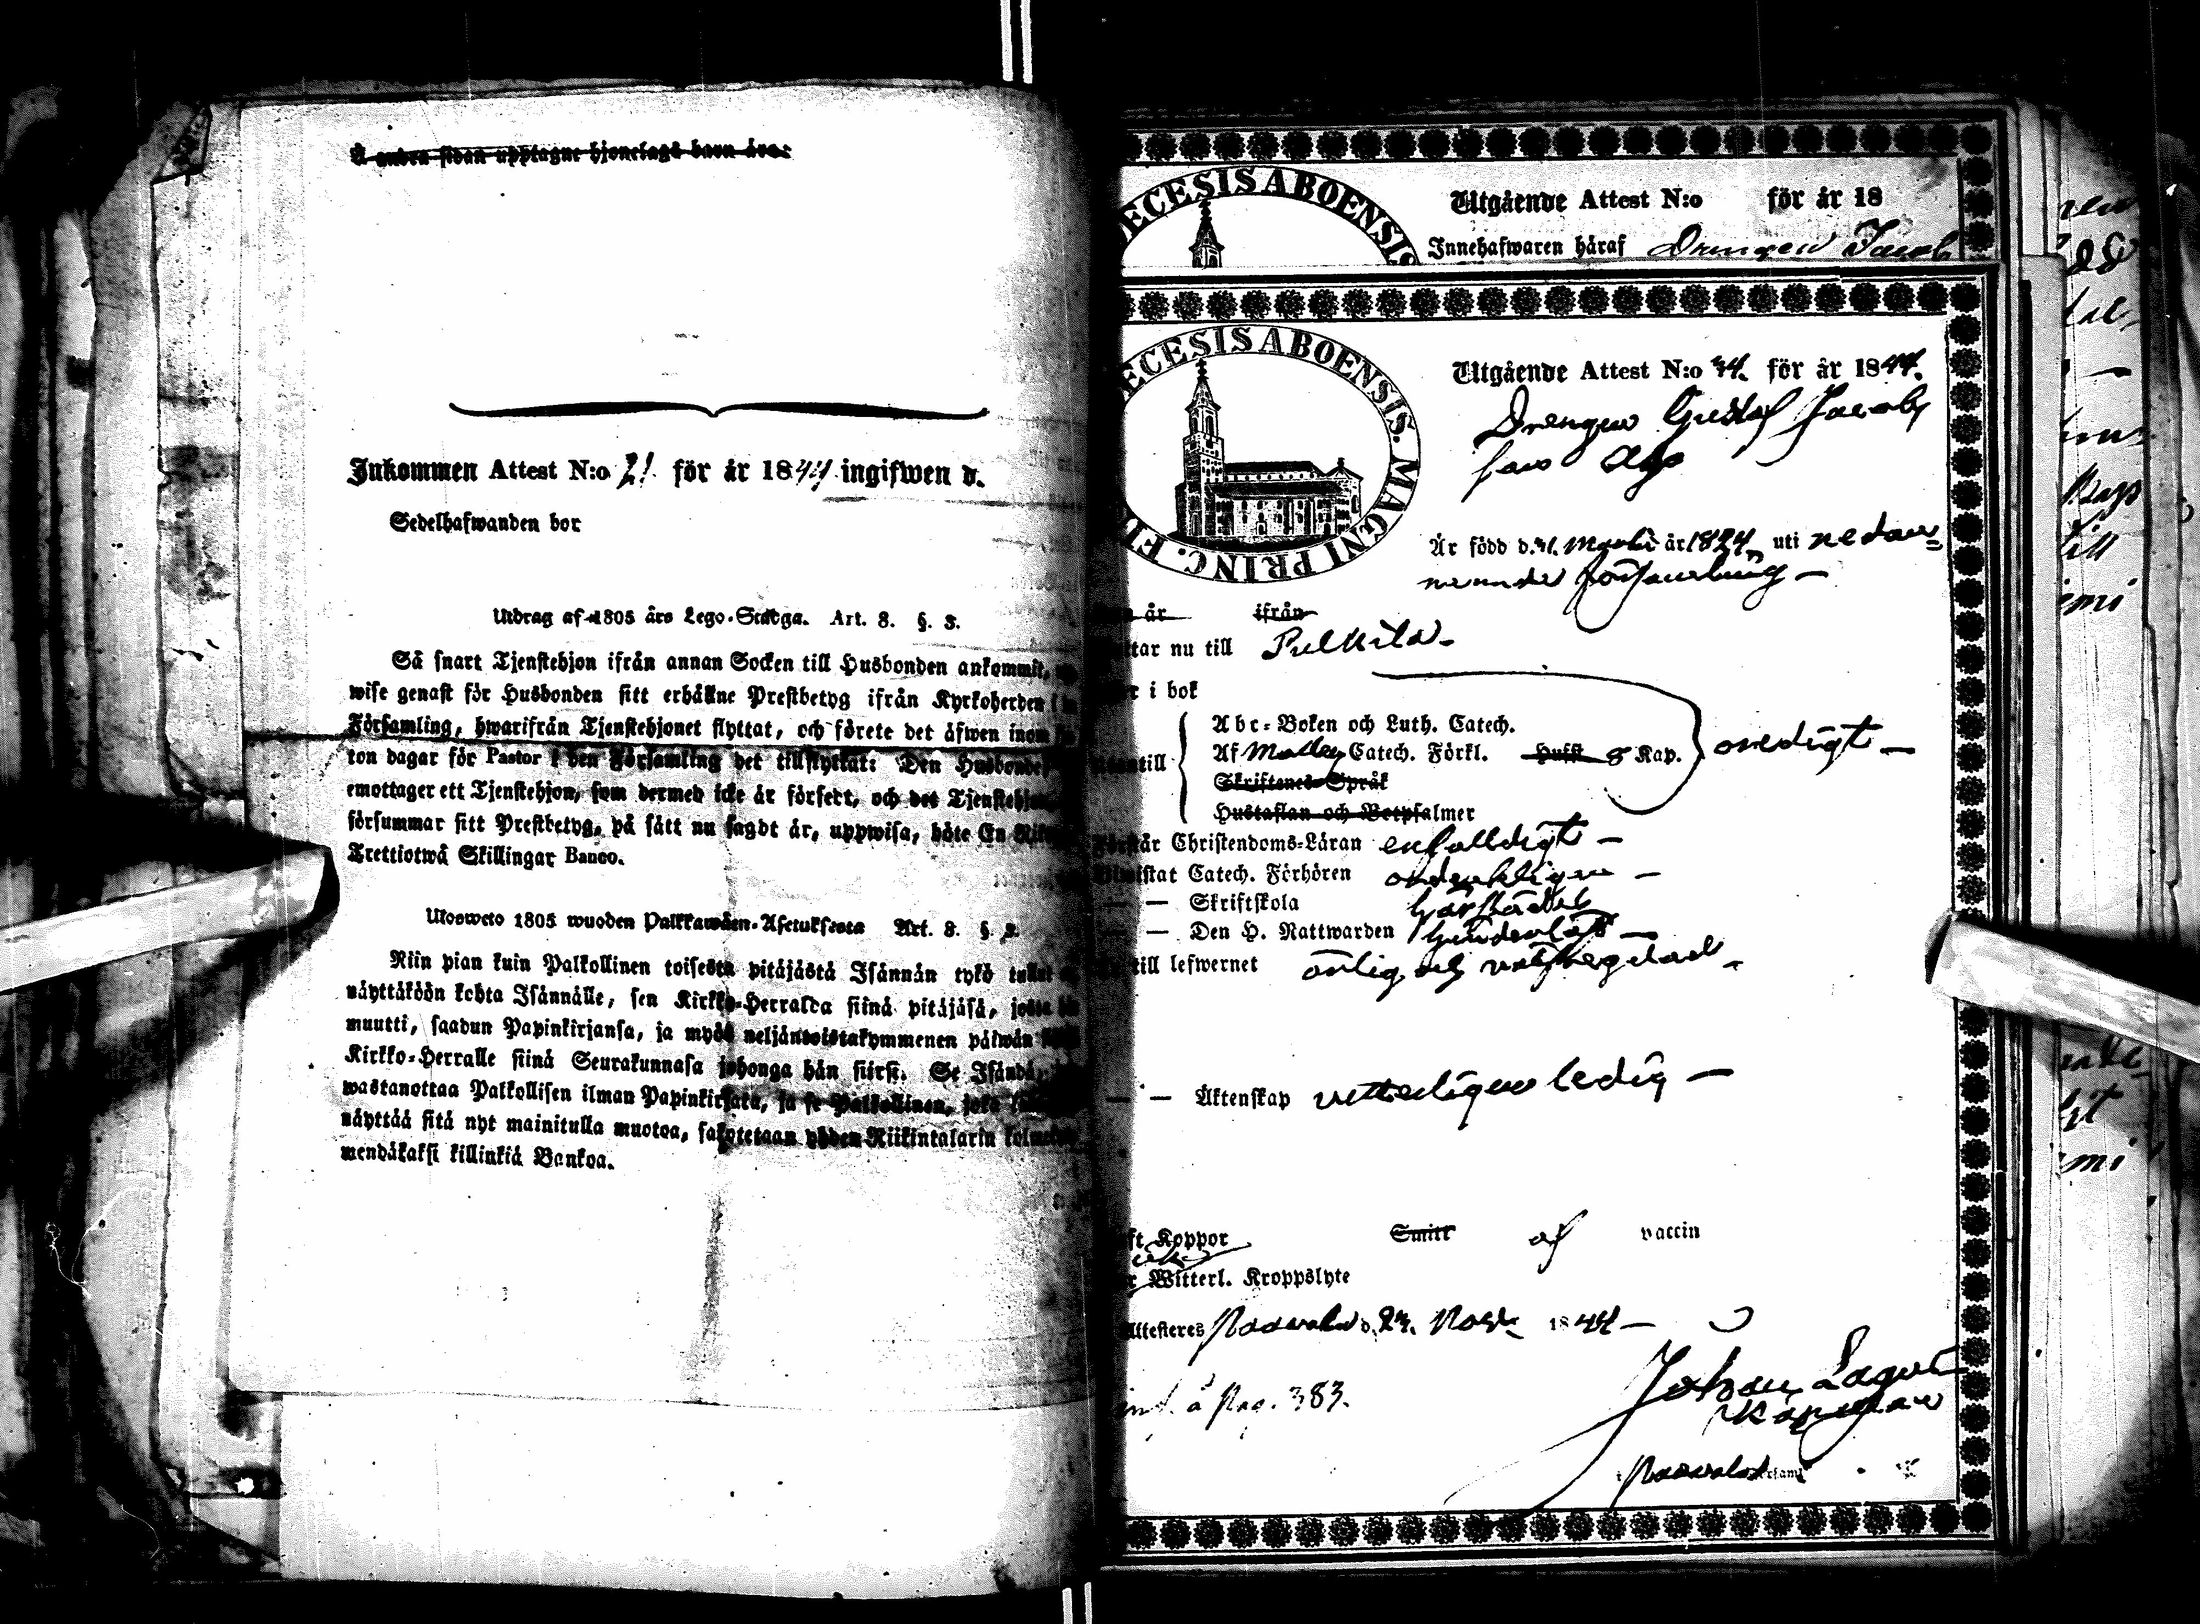 Å andra sidan upptagne hjonelags barn äro:
Inkommen Attest N:o 21. för år 1844 ingifwen d.
Sedelhafwanden bor
Utdrag af 1805 års Lego-Stadga. Art. 8. §. 3.
Så snart Tjenstehjon ifrån annan Socken till Husbonden ankommit,
wise genast för Husbonden sitt erhållne Prestbetyg ifrån Kyrkoherden i
Församling, hwarifrån Tjenstehjonet flyttat, och förete det äfwen inom
ton dagar för Pastor i den Församling det tillflyttat: Den Husbonde
emottager ett Tjenstehjon, som dermed icke är försett, och det Tjenstehjon
försummar sitt Prestbetyg, på sätt nu sagdt är, uppwisa, böte En
Trettiotwå Skillingar Banco.
Ulosweto 1805 wuoden Palkkawäen-Asetuksesta Art. 8. §. 3.
Niin pian kuin Palkollinen toisesta pitäjästä Isännän tykö tullut
näyttäköön kohta Isännälle, sen Kirkko-Herralda siinä pitäjäsä, josta
muutti, saadun Papinkirjansa, ja myös neljäntoistakymmenen päiwän
Kirkko-Herralle siinä Seurakunnasa johonga hän siirsi. Se Isändä,
wastanottaa Palkollisen ilman Papinkirjata, ja se Palkollinen, joka
näyttää sitä nyt mainitulla muotoa, sakotetaan yhden Riikintalarin
mendäkaksi killinkiä Bankoa.
ECESIS ABOENSIS
Utgående Attest N:o för år 18
Innehafwaren häraf Drengen Jacob
ECESIS ABOENSIS. MAGNI PRINC. FI
Utgående Attest N:o 34. för år 1844.
Drengen Gustaf Jacobs
son
Är född d. 31. Martii år 1824 uti nedan=
nemnde församling —
år ifrån
tar nu till Pulkila
i bok
Abc-Boken och Luth. Catech.
Af Catech. Förkl. Hust. 8 Kap. onedigt —
Skriftenes Språk
Hustaflan och Botpsalmer
Förstår Christendoms-Läran enfalldigt —
Bewistat Catech. Förhören ordenteligen —
— — Skriftskola
— — Den H. Nattwarden —
till lefwernet ärlig och
— — Äktenskap vetterligen ledig —
ft Koppor Smitt af vaccin
Witterl. Kroppslyte
Attesteres d. 23. Nov. 1844 —
inf. å Pag. 383.
Johan Lagus
Kapellan